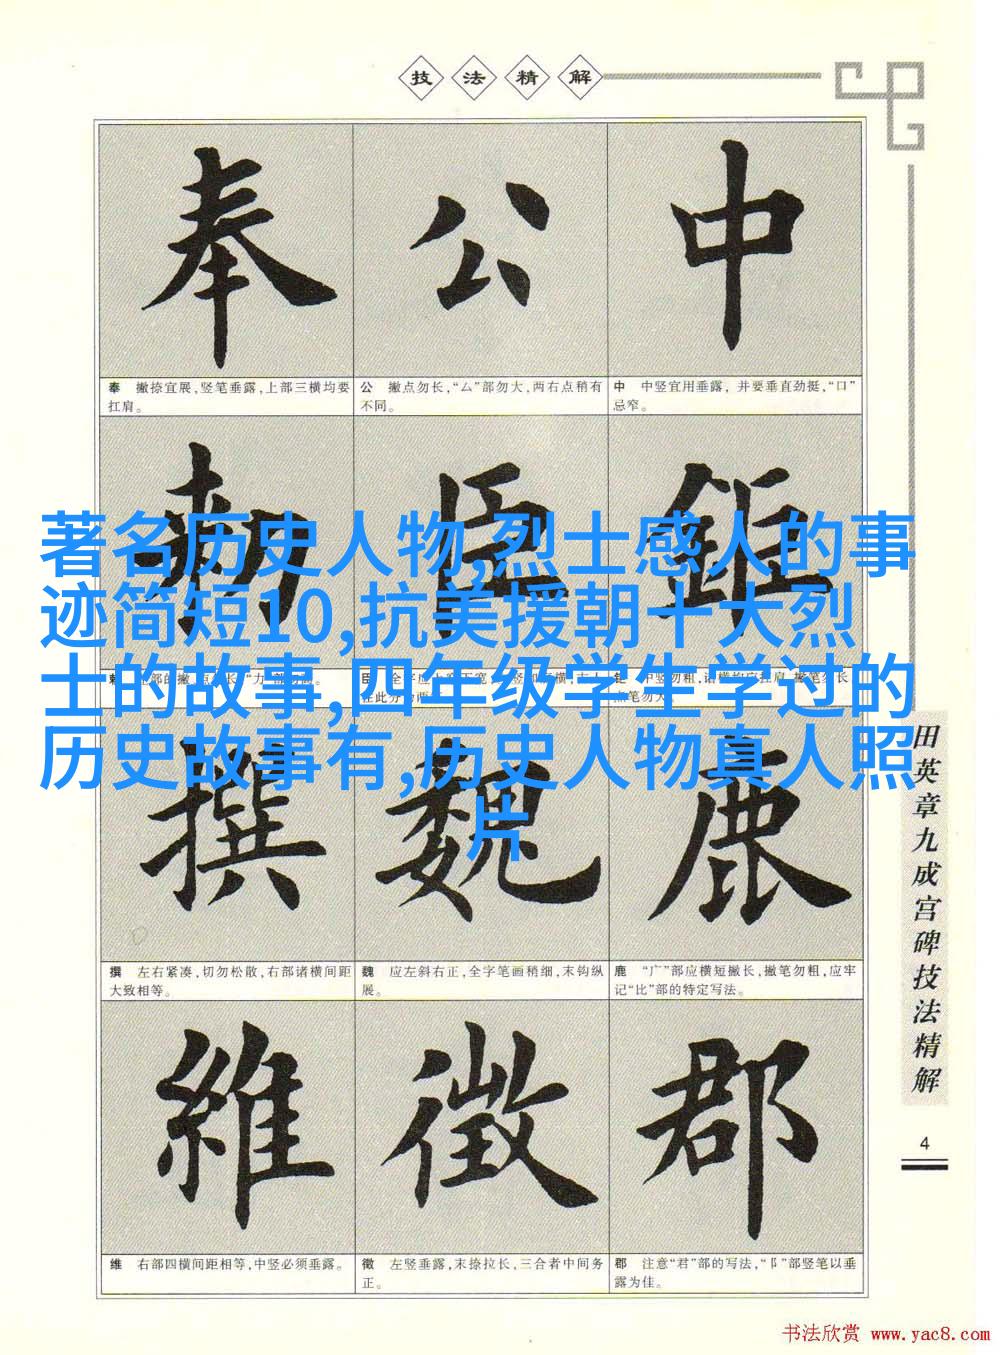 技法精解
奉 公 中
奉 撇捺宜展,竖笔垂露,上部三横均要
扛肩。
公 撇点勿长,“厶”部勿大,两右点稍有
不同。
中 中竖宜用垂露, 并要垂直劲挺,“口”
忌窄。
勑 臣 鉅
著名历史人物,烈士感人的事
迹简短10,抗美援朝十大烈
士的故事,四年级学生学过的
历史故事有,历史人物真人照
片
撰 魏 鹿
撰 左右紧凑,切勿松散,右部诸横间距
大致相等。
魏 应左斜右正,全字笔画稍细,末钩纵
展。
鹿 “广”部应横短撇长,撇笔勿粗,应牢
记“比”部的特定写法。
維 徵 郡
维 右部四横间距相等,中竖必须垂露。
徵 左竖垂露,末捺拉长,三合者中间务
正。
郡 注意“君”部的写法,“阝”部竖笔以垂
露为佳。
田英章九成宫碑技法精解
4
书法欣赏 www.yac8.com